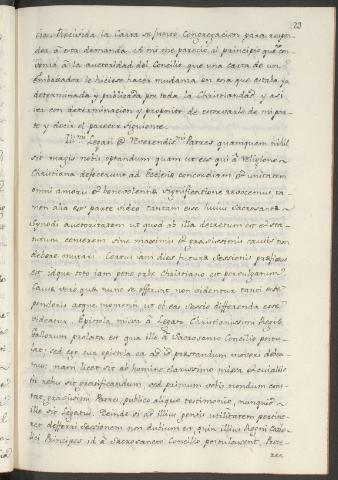 23
cia. Recivida la Carta se junto Congregacion para respon
der a esta demanda. A mi me pareció al principio que con
venia a la auctoridad del Concilio que una carta de un
Embaxador le hiciese hacer mudanza en cosa que estaba ya
determinada y publicada por toda la Christiandad y asi
ser con determinacion y proposito de estorvarlo de mi par
te y decir el parecer siguiente.
Ill.mi Legati & Reverendis.mi Patres quamquam nihil
sit magis nobis optandum quam ut eos qui a religione
Christiana defecerunt ad Ecclesiæ concordiam et unitatem
omni amoris et benevolentiæ significatione revocemus ta
men alia ex parte video tantam esse huius Sacrosanctæ
Synodi auctoritatem ut quod ab illa decretum est et sta
tutum convenit sine maximis et gravissimis causis non
debere mutari. Certus iam dies futuræ Sessionis præfixus
est, idque toto iam pene orbe Christiano est pervulgatum.
Causæ vero quæ nunc se offerunt, non videntur tanti esse
ponderis atque momenti ut ob eas Sessio differenda esse
videatur. Epistola missa a Legato Christianissimi Regis
Gallorum prolata est qua ille a Sacrosancto Concilio postu
lat; sed ego ea epistola ea ad id præstandum moveri debea
mus; nam licet sit ab homine clarissimo missa et
in rebus sit gratificandum, sed primum nobis nondum cons
tat, gravissimi Patres, publico aliquo testimonio, nunquid
ille sit Legatus. Deinde si ad illius gentis utilitatem pertine
ret differri Sessionem non dubium est quin illius Regni Catho
lici Principes id a Sacrosancto Concilio postulassent. Præte
rea